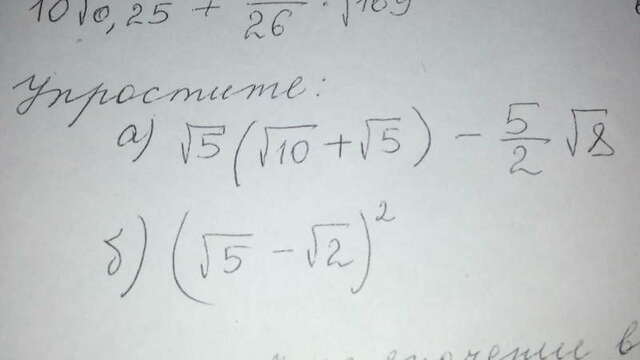 10√0,25 + /26 · √169
Упростите:
а) √5(√10 + √5) − 5/2 √8
б) (√5 − √2)²
значение в